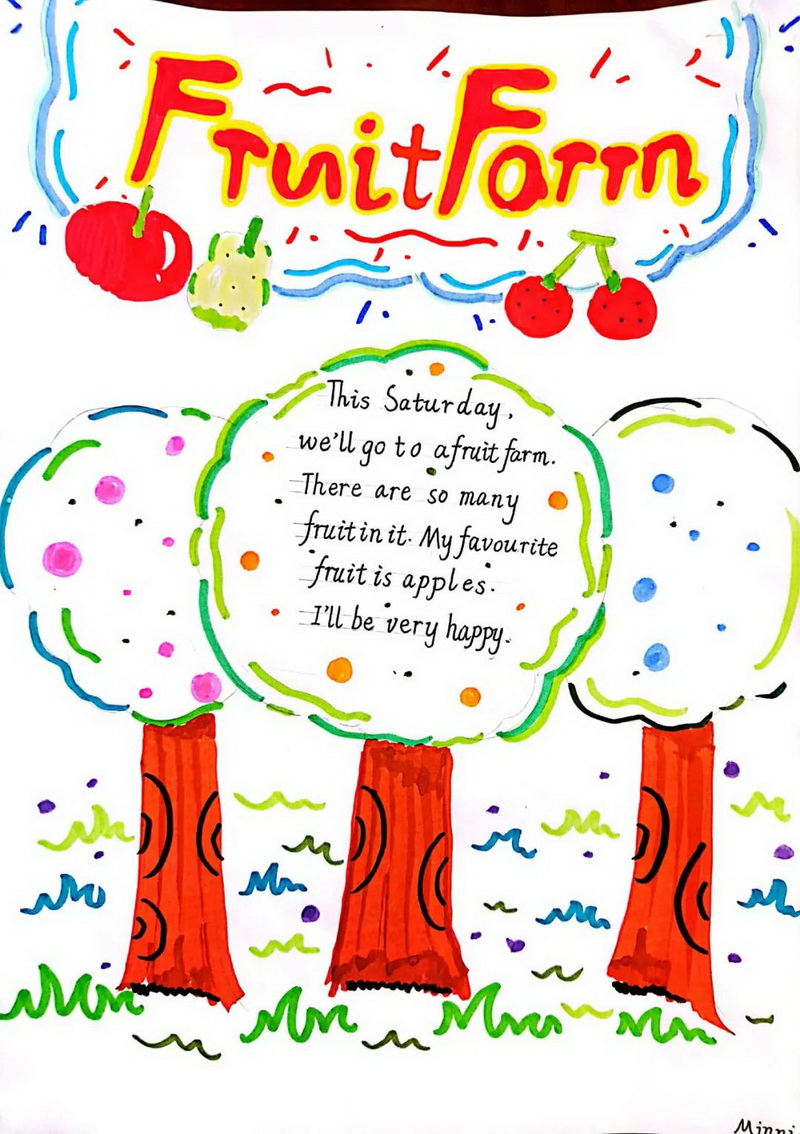 Fruit Farm
This Saturday,
we'll go to a fruit farm.
There are so many
fruit in it. My favourite
fruit is apples.
I'll be very happy.
Minni